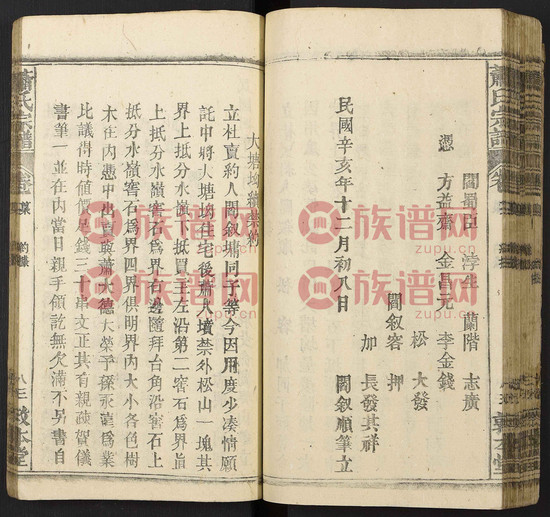 憑
閻蜀臣 浡生 蘭階 志廣
方益齋 金昌元 李金錢
松 大發
加 長發其祥
閻叙客 押
民國辛亥年十二月初八日 閻叙順筆立
大塘均續禁約
立杜賣約人閻叙墉同子等今因用度少湊情願
託中將大塘均住宅後蕭大墳禁外松山一塊其
界上抵分水嶺下抵買主左沿第二窖石爲界直
上抵分水嶺窖石爲界右邊隨拜台角沿窖石上
抵分水嶺窖石爲界四界俱明界內大小各色樹
木在內憑中出賣與蕭大德大榮子孫永遠爲業
比議得時値價足錢三十串文正其有親疎賀儀
書筆一並在內當日親手領訖無欠滴不另書自
蕭氏宗譜
約據
八三
敦本堂
蕭氏宗譜
敦本堂
族谱网
zupu.cn
族谱网
zupu.cn
族谱网
zupu.cn
族谱网
zupu.cn